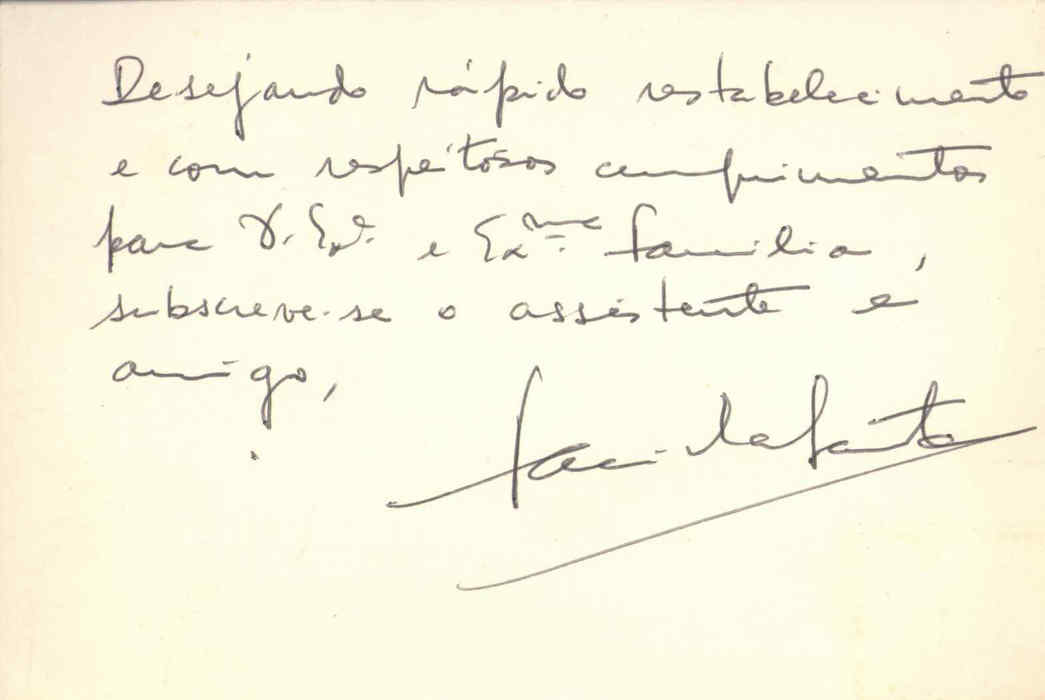 Desejando rápido restabelecimento
e com respeitosos cumprimentos
para V. Exª. e Exma família,
subscreve-se o assistente e
amigo,